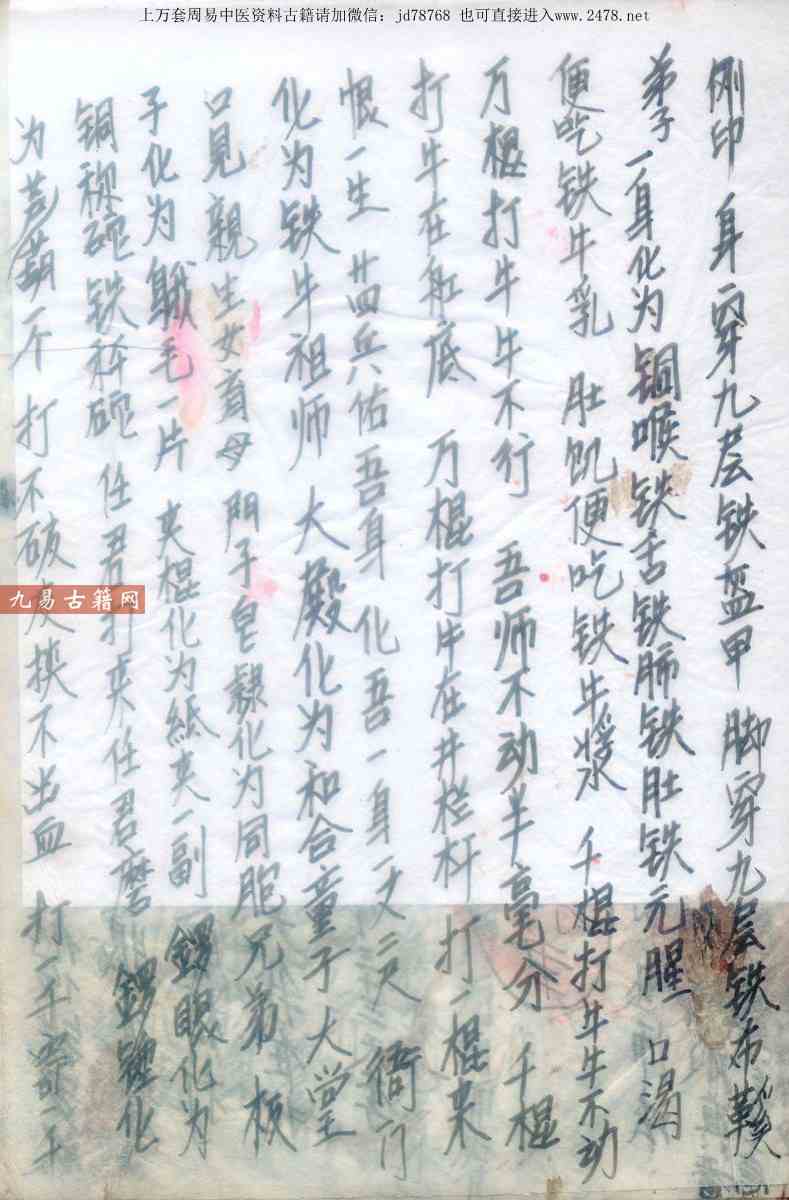 上万套周易中医资料古籍请加微信：jd78768 也可直接进入www.2478.net
身穿九层铁盔甲 脚穿九层铁布鞋
弟子一身化为铜喉铁舌铁肺铁肚铁元腥 口渴
便吃铁牛乳 肚饥便吃铁牛浆 千棍打牛牛不动
万棍打牛牛不行 吾师不动半毫分 千棍
打牛在缸底 万棍打牛在井栏杆 打一棍来
恨一生 兵佑吾身 化吾一身一丈二尺 衙门
化为铁牛祖师 大殿化为和合童子 大堂
口见親生女育母 門子皂隸化为同胞兄弟 板
子化为鵝毛一片 夹棍化为紙夹一副 鑼眼化为
铜称砣铁称砣 任君打来任君磨 化
为葫一个 打不破皮挨不出血 打一千寄一千
九易古籍网